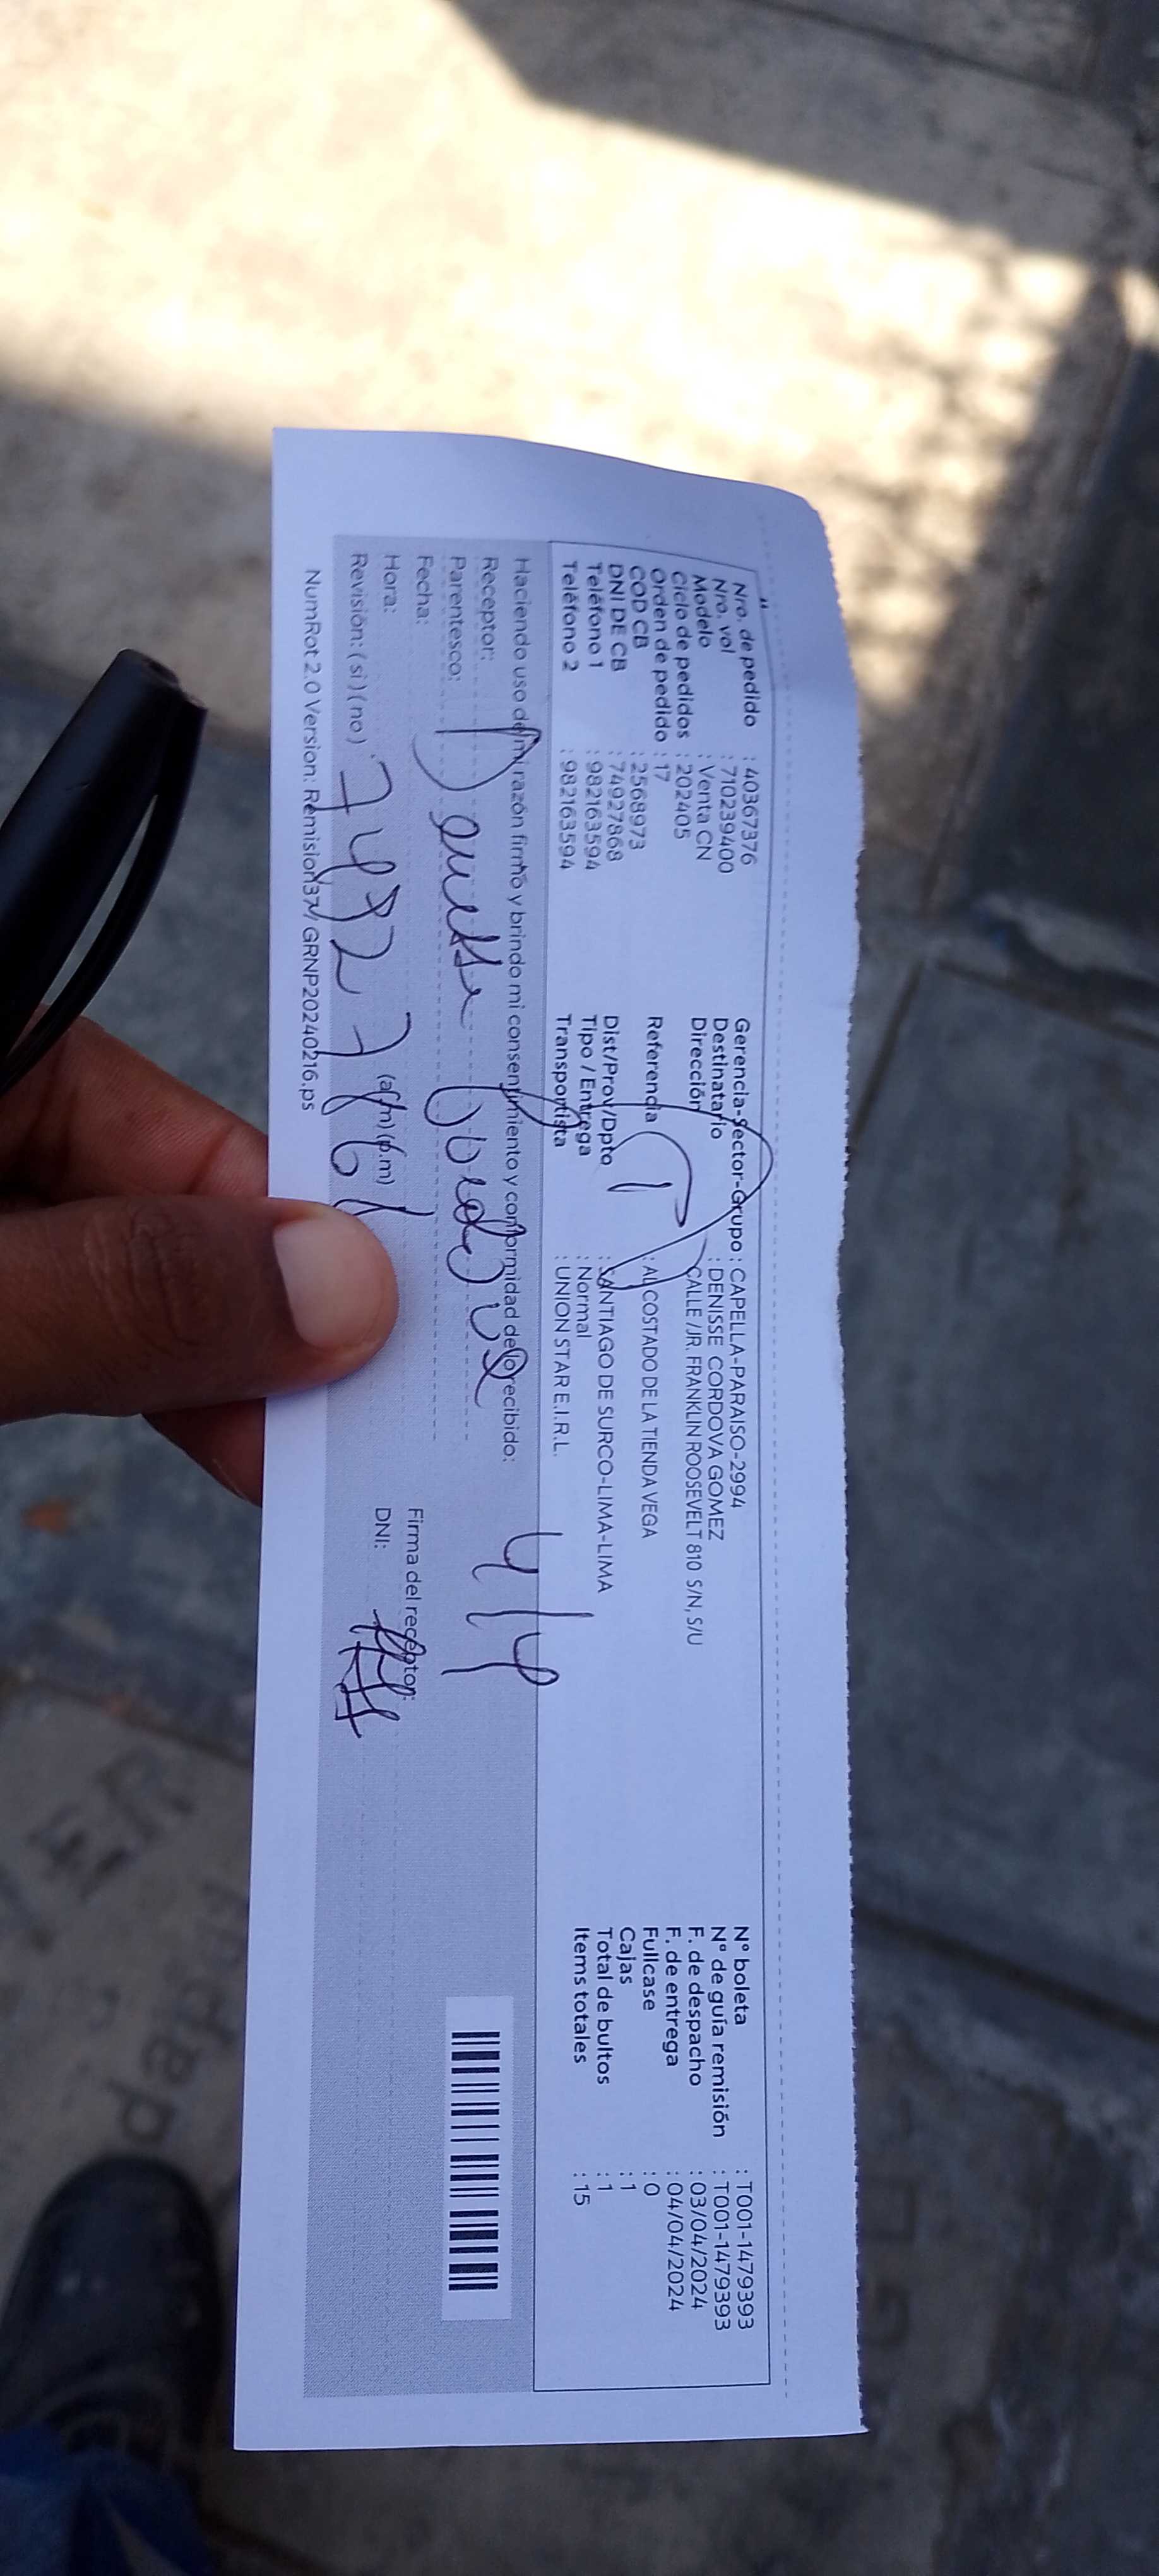 Nro. de pedido : 40367376
Nro. vol : 710239400
Modelo : Venta CN
Ciclo de pedidos : 202405
Orden de pedido : 17
COD CB : 2568973
DNI DE CB : 74927868
Teléfono 1 : 982163594
Teléfono 2 : 982163594
Gerencia-Sector-Grupo : CAPELLA-PARAISO-2994
Destinatario : DENISSE CORDOVA GOMEZ
Dirección : CALLE / JR. FRANKLIN ROOSEVELT 810 S/N, S/U
Referencia : AL COSTADO DE LA TIENDA VEGA
Dist/Prov/Dpto : SANTIAGO DE SURCO-LIMA-LIMA
Tipo / Entrega : Normal
Transportista : UNION STAR E.I.R.L.
N° boleta : T001-1479393
N° de guía remisión : T001-1479393
F. de despacho : 03/04/2024
F. de entrega : 04/04/2024
Fullcase : 0
Cajas : 1
Total de bultos : 1
Items totales : 15
Haciendo uso de mi razón firmo y brindo mi consentimiento y conformidad de lo recibido:
Receptor:
Parentesco:
Fecha:
Hora: (a.m) (p.m)
Revisión: (si) (no)
4/4
Firma del receptor:
DNI:
NumRot 2.0 Version: Remision37v GRNP20240216.ps